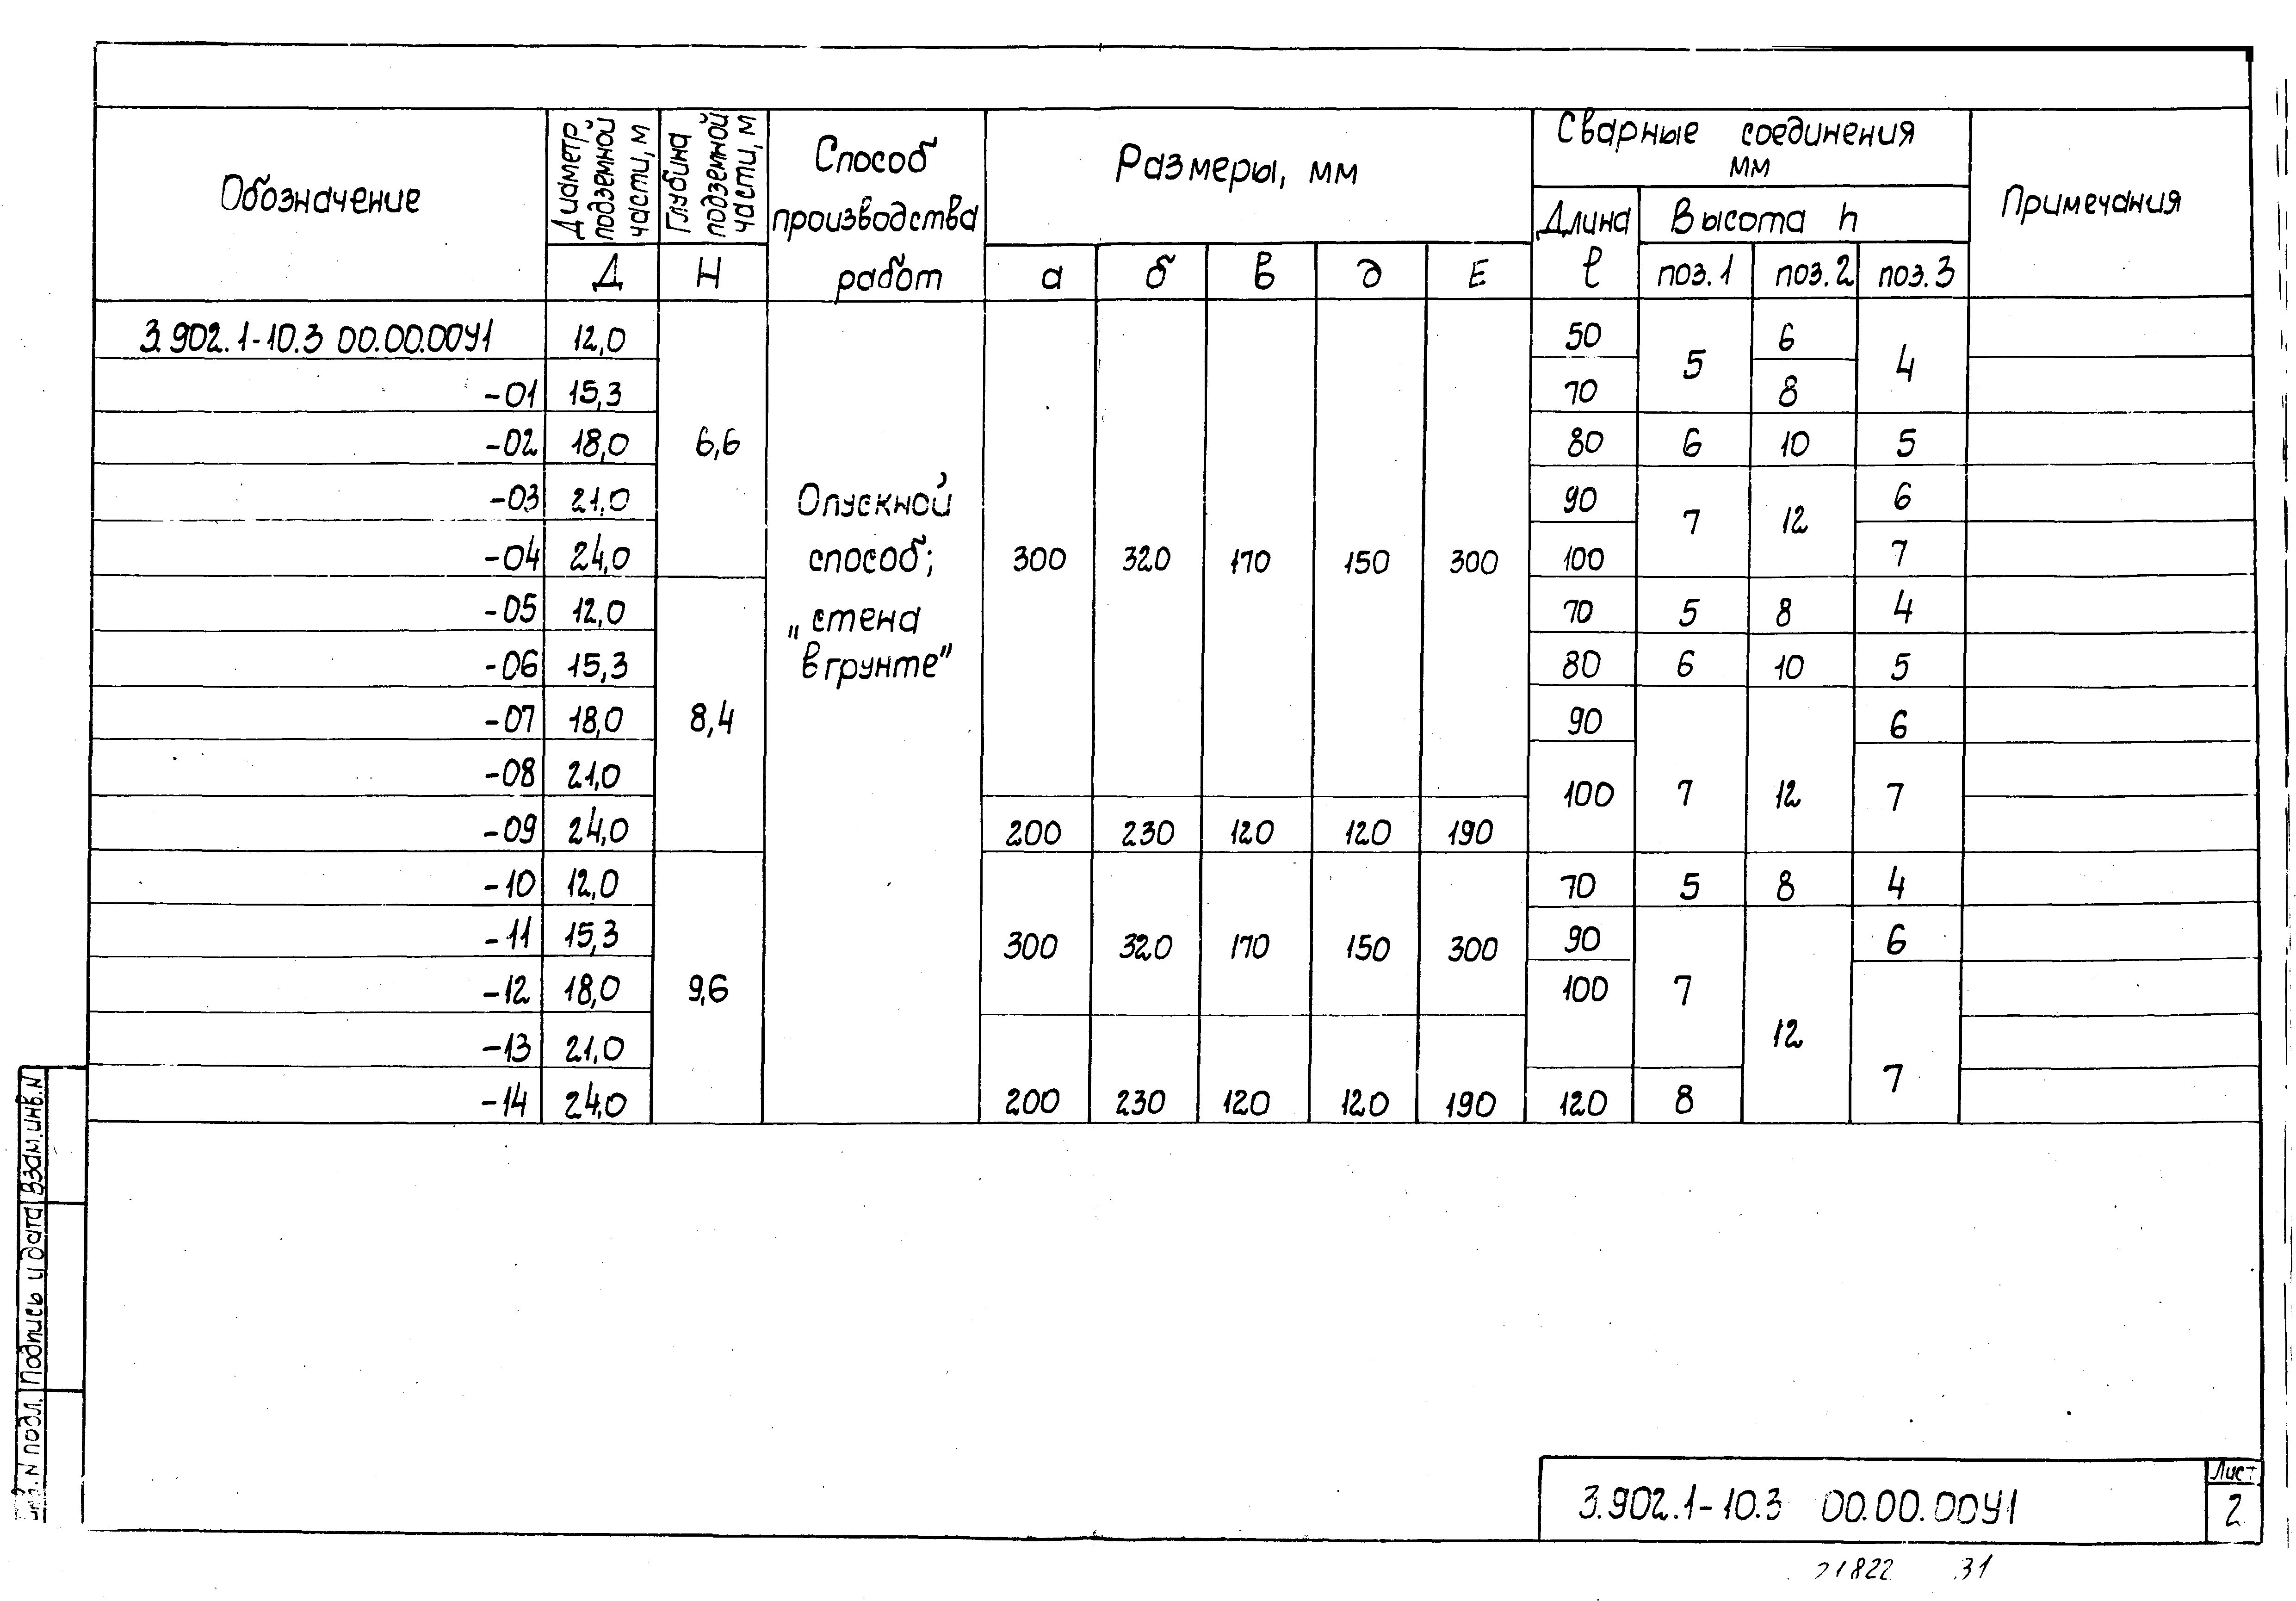 Обозначение
Диаметр подземной части, м
Глубина подземной части, м
Способ производства работ
Размеры, мм
Сварные соединения мм
Примечания
Длина Высота h
Д Н а б в д Е ℓ поз.1 поз.2 поз.3
3.902.1-10.3 00.00.00У1 12,0 50 5 6 4
-01 15,3 70 8
-02 18,0 6,6 80 6 10 5
-03 21,0 90 7 12 6
-04 24,0 300 320 170 150 300 100 7
Опускной
способ;
„стена
в грунте"
-05 12,0 70 5 8 4
-06 15,3 80 6 10 5
-07 18,0 8,4 90 6
-08 21,0 100 7 12 7
-09 24,0 200 230 120 120 190
-10 12,0 70 5 8 4
-11 15,3 300 320 170 150 300 90 6
-12 18,0 9,6 100 7
-13 21,0 12
-14 24,0 200 230 120 120 190 120 8 7
Взам.инв.N
Подпись и дата
N подл.
3.902.1-10.3 00.00.00У1
Лист
2
21822 31